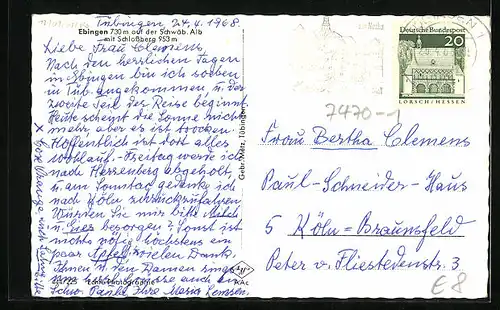 Tübingen, 24.4.1968.
Ebingen 730 m auf der Schwäb. Alb
mit Schloßberg 953 m
Liebe Frau Clemens,
Nach den herrlichen Tagen
in Ebingen bin ich soeben
in Tüb. angekommen u. der
zweite Teil der Reise beginnt
Heute scheint die Sonne nicht
mehr, aber es ist trocken.
Hoffentlich ist dort alles
wohlauf. - Freitag werde ich
nach Herrenberg abgeholt,
u. am Sonntag gedenke ich
nach Köln zurückzufahren
Würden Sie mir bitte Milch
u. Eier besorgen? Sonst ist
nichts nötig höchstens ein
paar Äpfel. Vielen Dank.
Ihnen u. den Damen
Grüsse auch
Schw. Paula, Ihre Maria
Gebr. Metz, Tübingen
Deutsche Bundespost
20
LORSCH/HESSEN
7470-1
Frau Bertha Clemens
Paul-Schneider-Haus
5 Köln-Braunsfeld
Peter v. Fliestedenstr. 3
€ 8